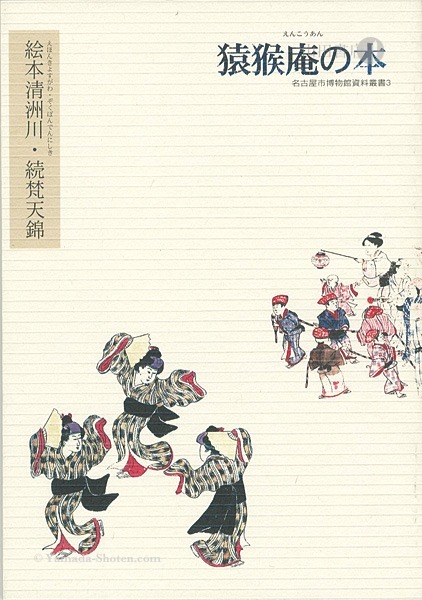 えんこうあん
猿猴庵の本
名古屋市博物館資料叢書3
えほんきよすがわ・ぞくぼんでんにしき
絵本清洲川・続梵天錦
© Yamada-Shoten.com